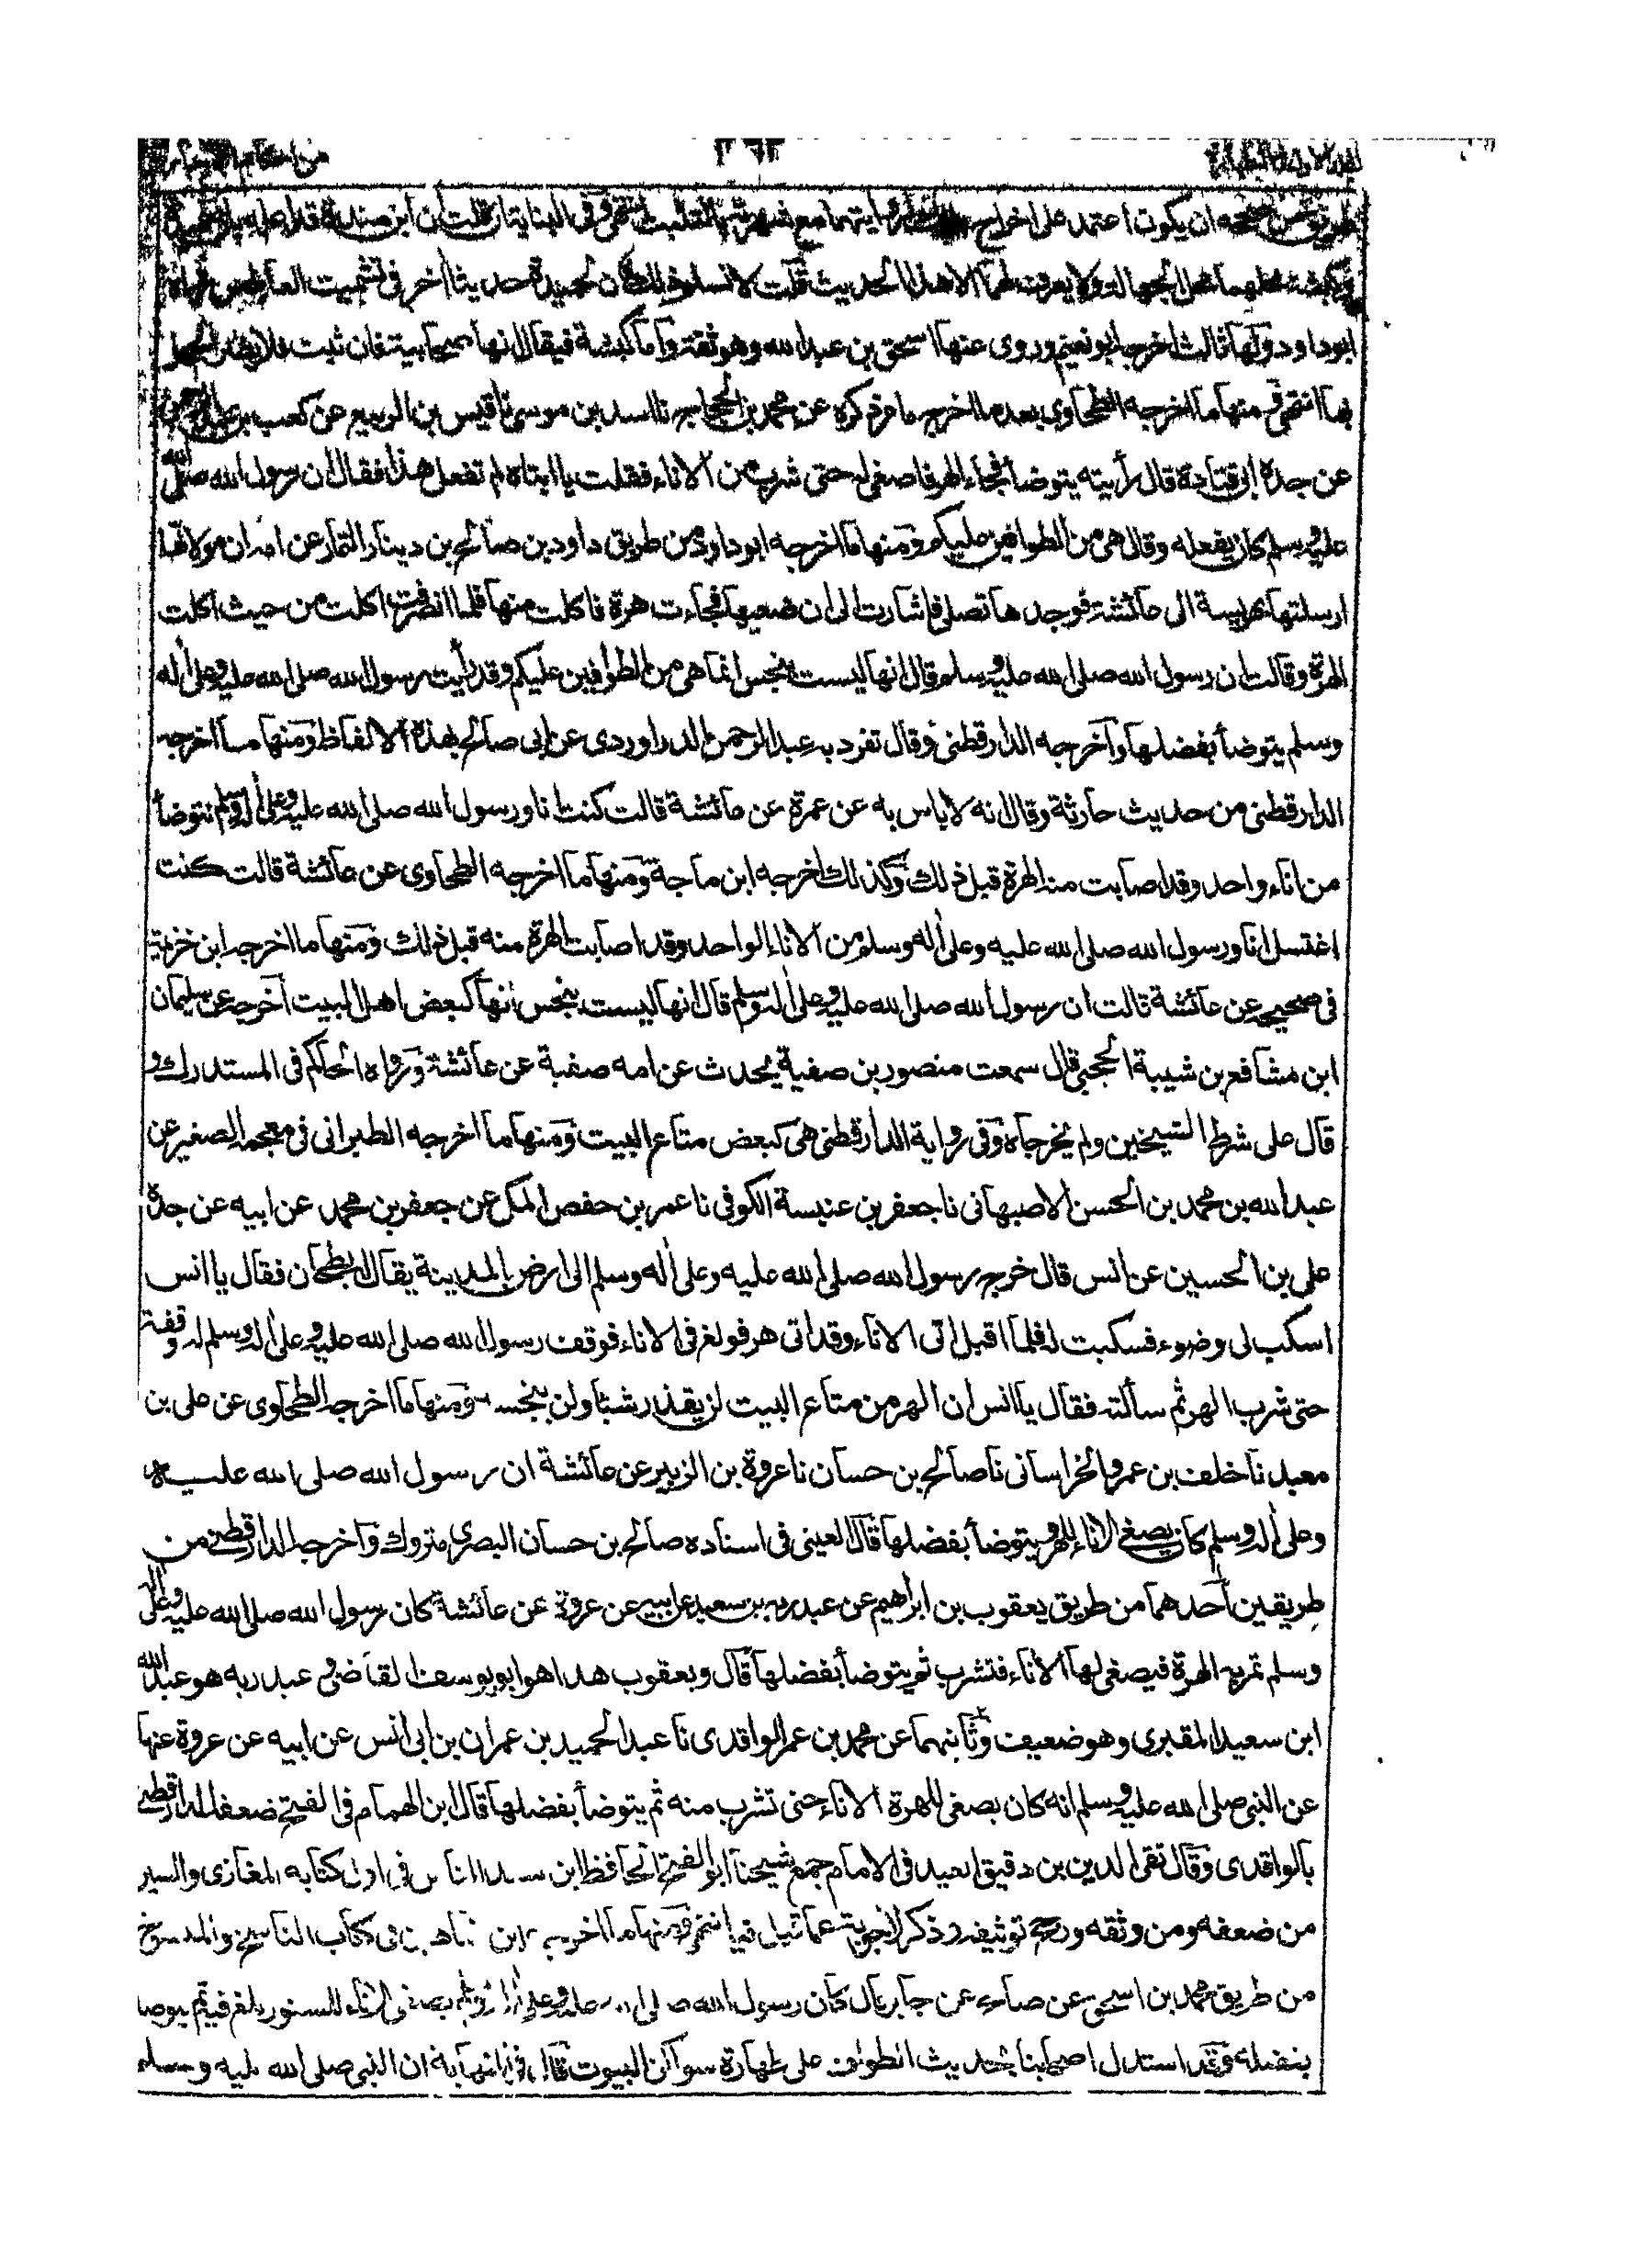 من احكام الآبار
طريق من صححه ان يكون اعتمد على اخراج روايتهما مع شهرتهما بالتثبت انتهى وفى البناية قلت ان ابن مندة قال
وكبشة محلهما محل الجهالة ولا يعرف لهما الا هذا الحديث قلت لا نسلم ذلك فان لحميدة حديثا آخر فى تشميت العاطس رواه
ابو داود ولها ثالث اخرجه ابو نعيم وروى عنها اسحق بن عبد الله وهو ثقة واما كبشة فيقال انها صحابية فان ثبت فلا يضر الجهل
بها انتهى ومنها ما اخرجه الطحاوى بعد ما اخرجه ما مر ذكره عن محمد بن الحجاج نا اسد بن موسى نا قيس بن الربيع عن كعب بن عبد الرحمن
عن جده ابى قتادة قال رأيته يتوضأ فجاء الهر فاصغى له حتى شرب من الاناء فقلت يا ابتاه لم تفعل هذا فقال ان رسول الله صلى الله
عليه وسلم كان يفعله وقال هى من الطوافين عليكم ومنها ما اخرجه ابو داود من طريق داود بن صالح بن دينار التمار عن امه ان مولاتها
ارسلتها بهريسة الى عائشة فوجدها تصلى فاشارت الى ان ضعيها فجاءت هرة فاكلت منها فلما انصرفت اكلت من حيث اكلت
الهرة وقالت ان رسول الله صلى الله عليه وسلم قال انها ليست بنجس انما هى من الطوافين عليكم وقد رأيت رسول الله صلى الله عليه وعلى أله
وسلم يتوضأ بفضلها وآخرجه الدارقطنى وقال تفرد به عبد الرحمن الدراوردى عن ابى صالح بهذه الالفاظ ومنها ما اخرجه
الدارقطنى من حديث حارثة وقال انه لا باس به عن عمرة عن عائشة قالت كنت انا ورسول الله صلى الله عليه وعلى أله وسلم نتوضأ
من اناء واحد وقد اصابت منه الهرة قبل ذلك وكذلك اخرجه ابن ماجة ومنها ما اخرجه الطحاوى عن عائشة قالت كنت
اغتسل انا ورسول الله صلى الله عليه وعلى أله وسلم من الاناء الواحد وقد اصابت الهرة منه قبل ذلك ومنها ما اخرجه ابن خزيمة
فى صحيحه عن عائشة قالت ان رسول الله صلى الله عليه وعلى أله وسلم قال انها ليست بنجس انها كبعض اهل البيت آخرجه عن سليمان
ابن مشافع بن شيبة الحجبى قال سمعت منصور بن صفية يحدث عن امه صفية عن عائشة ورواه الحاكم فى المستدرك و
قال على شرط الشيخين ولم يخرجاه وفى رواية الدارقطنى هى كبعض متاع البيت ومنها ما اخرجه الطبرانى فى معجمه الصغير عن
عبد الله بن محمد بن الحسن الاصبهانى نا جعفر بن عنبسة الكوفى نا عمر بن حفص المكى عن جعفر بن محمد عن ابيه عن جده
على بن الحسين عن انس قال خرج رسول الله صلى الله عليه وعلى أله وسلم الى ارض بالمدينة يقال لها بطحان فقال يا انس
اسكب لى وضوء فسكبت له فلما اقبل اتى الاناء وقد اتى هر فولغ فى الاناء فوقف رسول الله صلى الله عليه وعلى أله وسلم له وقفة
حتى شرب الهر ثم سألته فقال يا انس ان الهر من متاع البيت لن يقذر شيئا ولن ينجسه ومنها ما اخرجه الطحاوى عن على بن
معبد نا خلف بن عمرو الخراسانى نا صالح بن حسان نا عروة بن الزبير عن عائشة ان رسول الله صلى الله عليه
وعلى أله وسلم كان يصغى الاناء للهر ويتوضأ بفضلها قال العينى فى اسناده صالح بن حسان البصرى متروك وآخرجه الدارقطنى من
طريقين احدهما من طريق يعقوب بن ابراهيم عن عبد ربه بن سعيد عن ابيه عن عروة عن عائشة كان رسول الله صلى الله عليه وعلى أله
وسلم تمر به الهرة فيصغى لها الاناء فتشرب ثم يتوضأ بفضلها قال ويعقوب هذا هو ابو يوسف القاضى وعبد ربه هو عبد الله
ابن سعيد المقبرى وهو ضعيف وثانيهما عن محمد بن عمر الواقدى نا عبد الحميد بن عمران بن ابى انس عن ابيه عن عروة عنها
عن النبى صلى الله عليه وسلم انه كان يصغى للهرة الاناء حتى تشرب منه ثم يتوضأ بفضلها قال ابن الهمام فى الفتح ضعفه الدارقطنى
بالواقدى وقال تقى الدين بن دقيق العيد فى الامام جمع شيخنا ابو الفتح الحافظ ابن سيد الناس فى اول كتابه المغازى والسير
من ضعفه ومن وثقه ورجح توثيقه وذكر الاجوبة عما قيل فيه انتهى ومنها ما اخرجه ابن شاهين فى كتاب الناسخ والمنسوخ
من طريق محمد بن اسحق عن صالح عن جابر قال كان رسول الله صلى الله عليه وعلى أله وسلم يصغى الاناء للسنور يلغ فيه ثم يتوضأ
بفضله وقد استدل اصحابنا بحديث الطواف على طهارة سواكن البيوت قال فى النهاية ان النبى صلى الله عليه وسلم